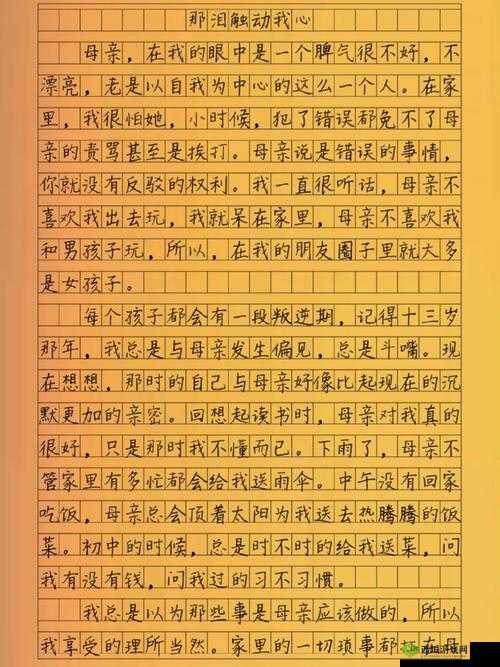 那泪触动我心
母亲，在我的眼中是一个脾气很不好，不
漂亮，老是以自我为中心的这么一个人。在家
里，我很怕她，小时候，犯了错误都免不了母
亲的责骂甚至是挨打。母亲说是错误的事情，
你就没有反驳的权利。我一直很听话，母亲不
喜欢我出去玩，我就呆在家里，母亲不喜欢我
和男孩子玩，所以，在我的朋友圈子里就大多
是女孩子。
每个孩子都会有一段叛逆期，记得十三岁
那年，我总是与母亲发生偏见，总是斗嘴。现
在想想，那时的自己与母亲好像比起现在的沉
默更加的亲密。回想起读书时，母亲对我真的
很好，只是那时我不懂而已。下雨了，母亲不
管家里有多忙都会给我送雨伞。中午没有回家
吃饭，母亲总会顶着太阳为我送去热腾腾的饭
菜。初中的时候，总是时不时的给我送菜，问
我有没有钱，问我过的习不习惯。
我总是以为那些事是母亲应该做的，所以
我享受的理所当然。家里的一切琐事都